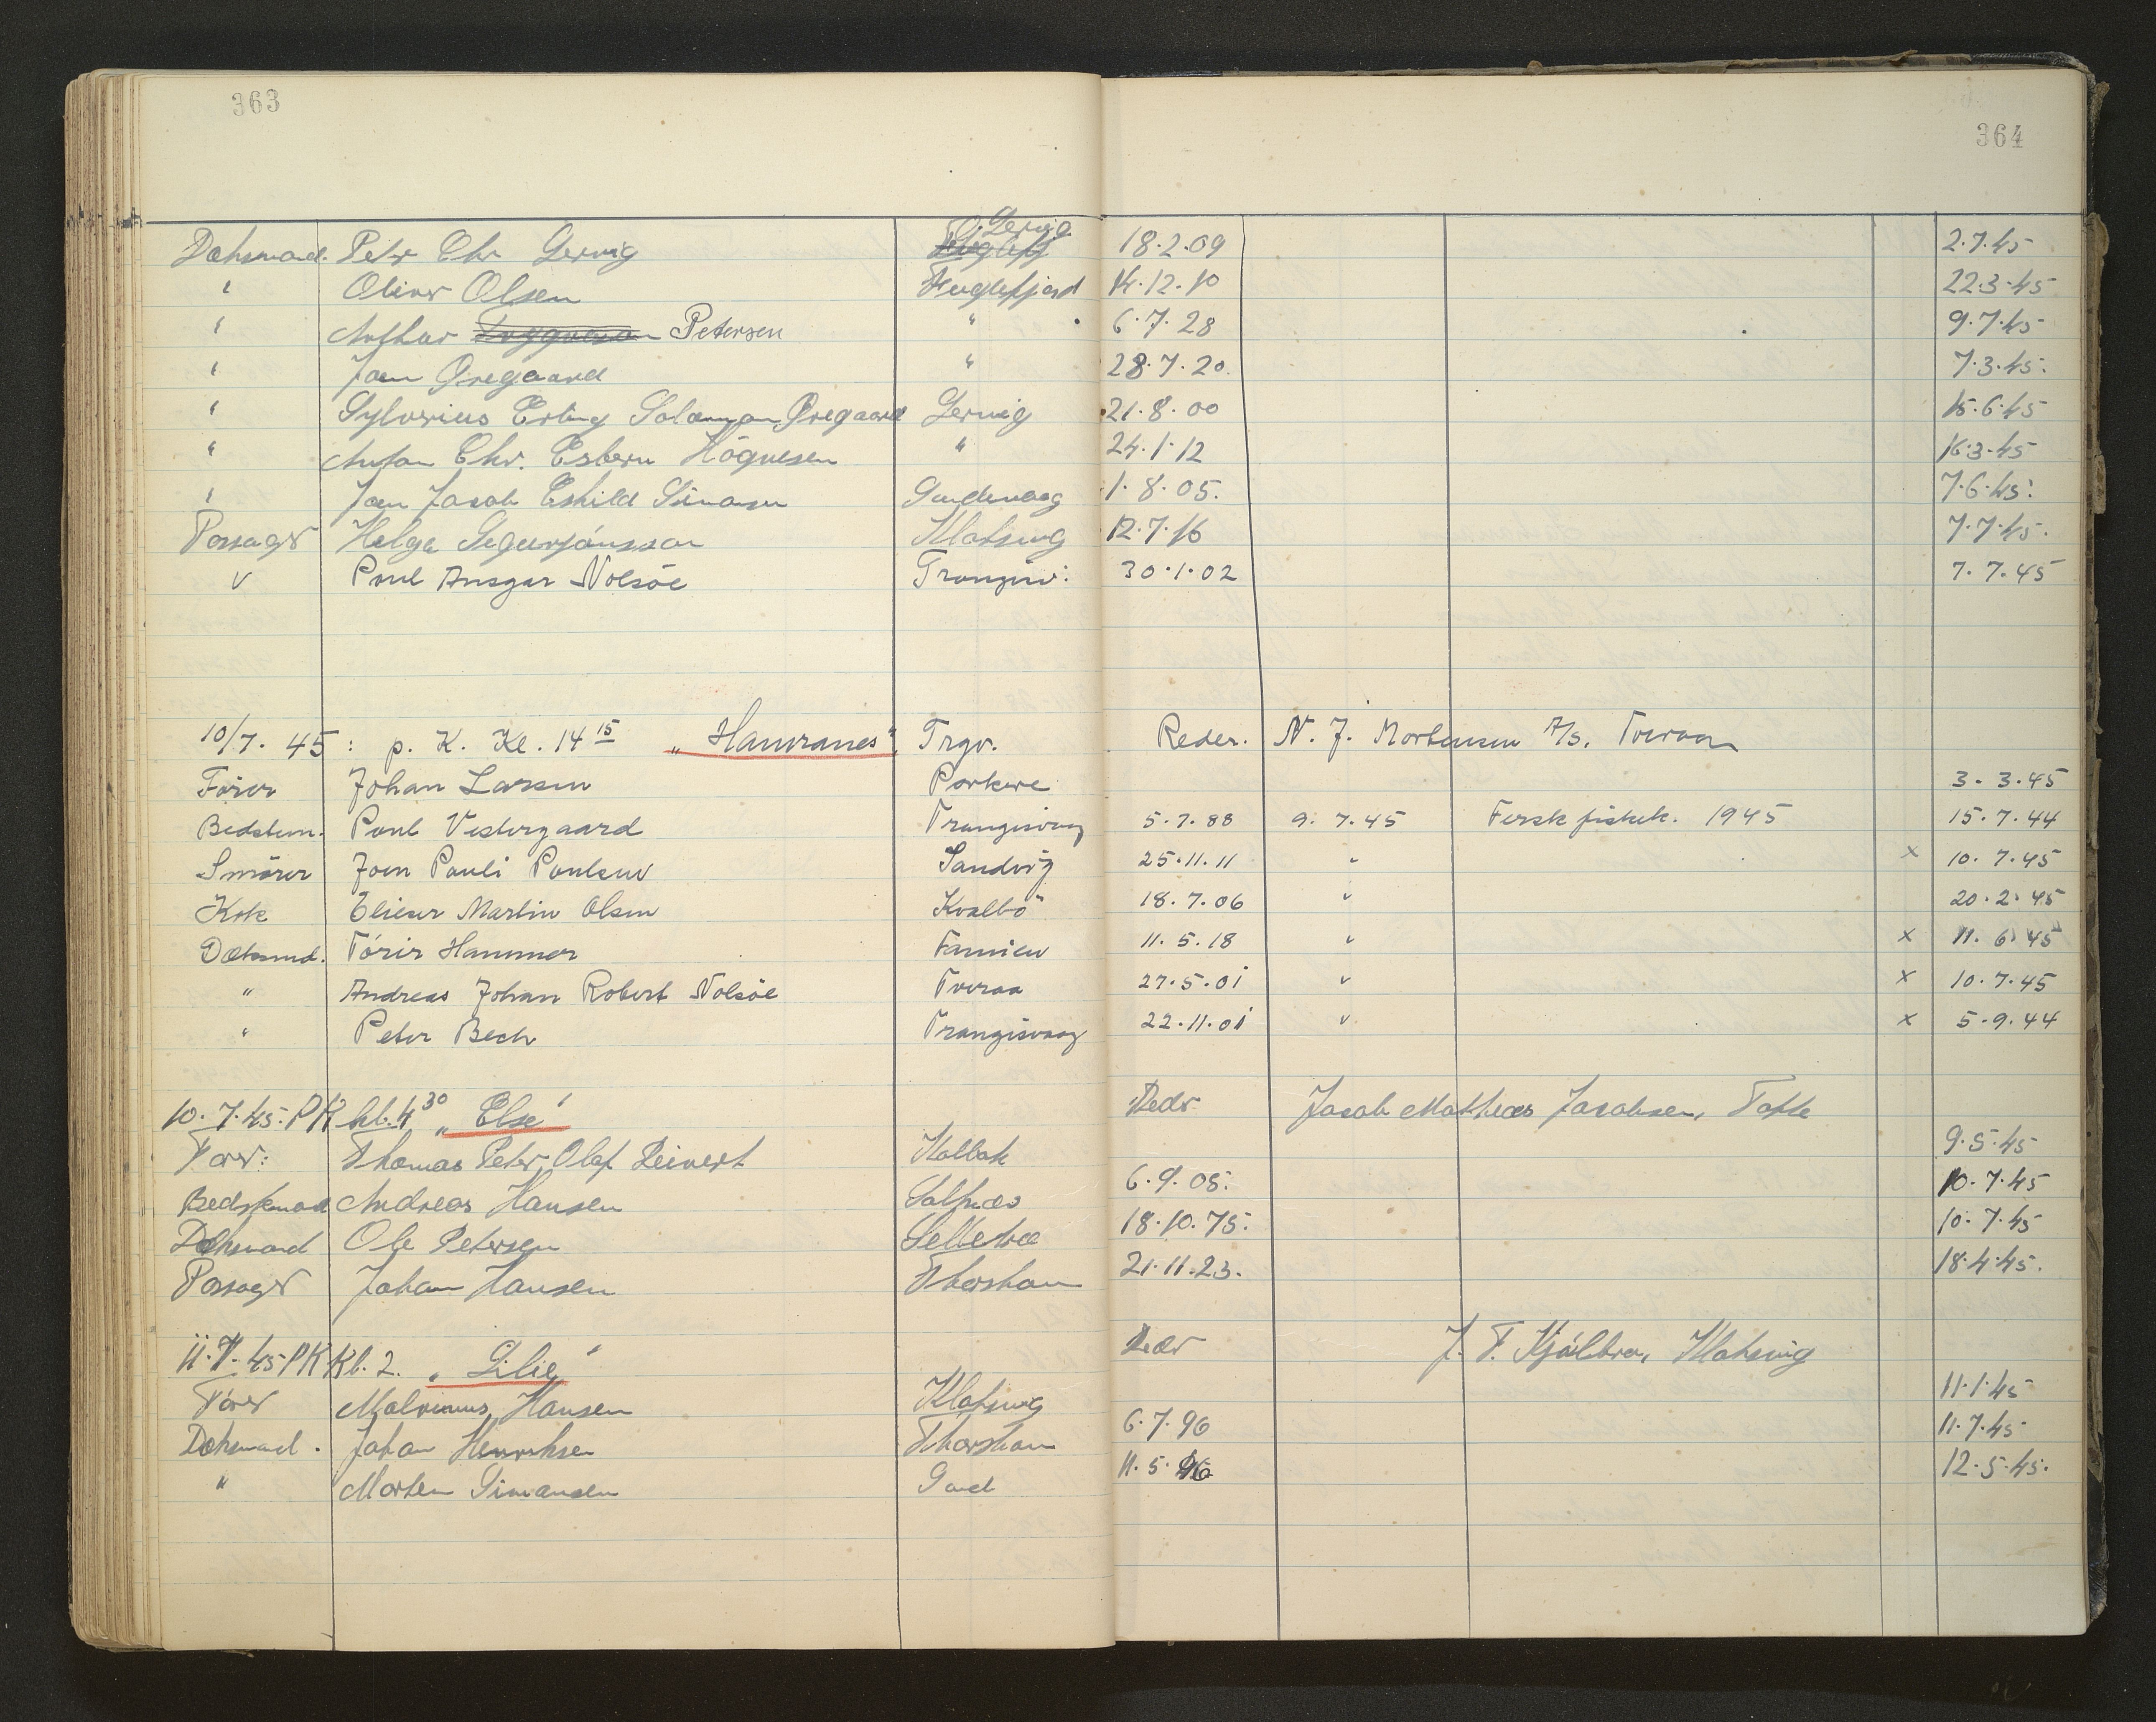 363
364
Dæksmand. Petr Chr Gervig Ø. Gervig 18.2.09 2.7.45
" Oliver Olsen Fuglefjord 14.12.10 22.3.45
" Arthur Petersen " 6.7.28 9.7.45
" Joen Øregaard " 28.7.20. 7.3.45.
" Sylverius Erling Salomon Øregaard Gervig 21.8.00 15.6.45
" Anton Chr. Esbern Högnesen " 24.1.12 16.3.45
" Joen Jacob Eskild Simonsen 1.8.05. 7.6.45.
Passager Helge Sigurjónsson Klaksvig 12.7.16 7.7.45.
" Poul Ansgar Nolsöe Trangisv: 30.1.02 7.7.45
10/7. 45: p. K. Kl. 14 15 „Hamranes" Trgv. Reder. N. J. Mortensen A/s. Tveraa
Förer Johan Larsen Porkere 3. 3.45
Bedstem. Poul Vestergaard Trangisvaag 5.7.88 9. 7.45 Ferskfiskek. 1945 15.7.44
Smörer Joen Pauli Poulsen Sandvig 25.11.11 " x 10. 7.45
Kok Elieser Martin Olsen Kvalbö 18.7.06 " 20.2.45
Dæksmd. Tórir Hammer Famien 11.5.18 " x 11. 6. 45
" Andreas Johan Robert Nolsöe Tveraa 27.5.01 " x 10.7.45
" Peter Bech Trangisvaag 22.11.01 " x 5.9.44
10.7.45. PK kl. 4 30 „Else" Reder Jacob Mathias Jacobsen, Tofte
Förer: Thomas Peter Olef Reinert Kollak 9.5.45
Bedstemand Andreas Hansen Saltnæs 6.9.05. 10.7.45
Dæksmand Ole Petersen Selletræ 18.10.75. 10.7.45
Passager Johan Hansen Thorshavn 21.11.23. 18.4.45.
11.7.45 PK Kl. 2. „Lilie" Reder J. F. Kjölbro, Klaksvig
Förer Malvinus Hansen Klaksvig 11.1.45
Dæksmand. Johan Henriksen Thorshavn 6.7.96 11.7.45
" Morten Simonsen 11.5.96 12.5.45.